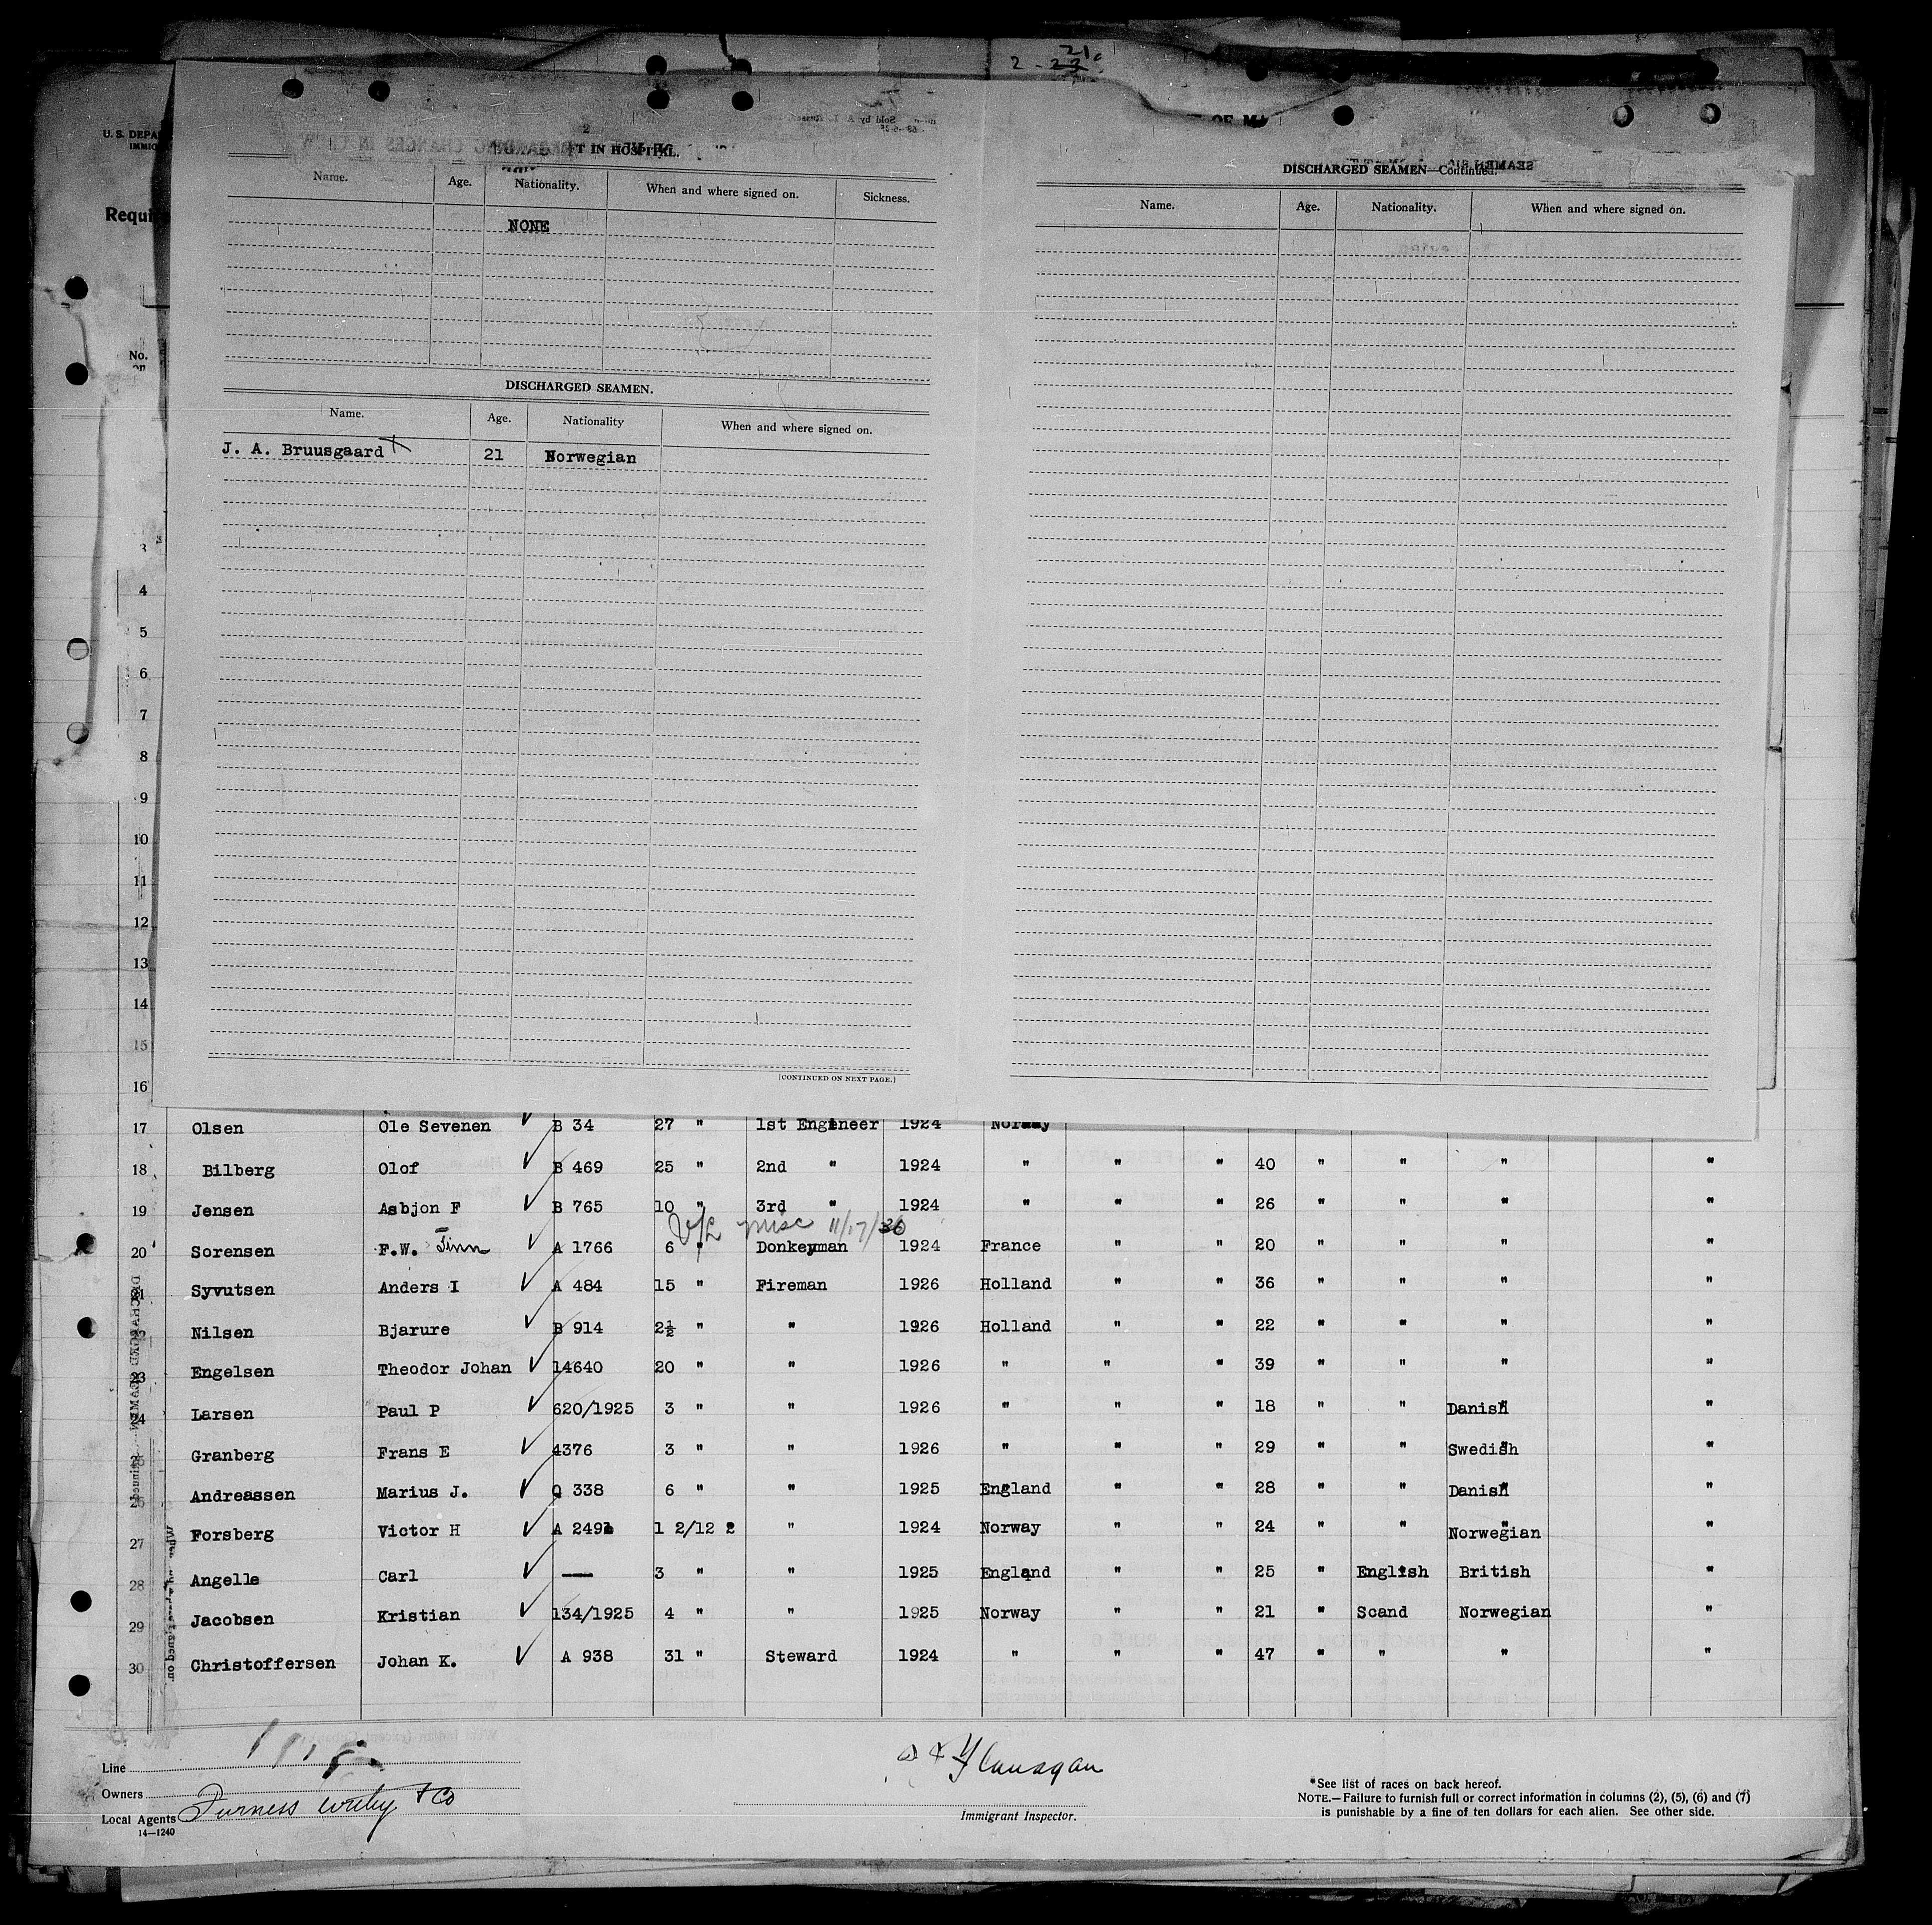 2 - 22 21c
U. S. DEPA
IMMIG
Requir
No.
on
2
T IN HOSPITAL.
Name. Age. Nationality. When and where signed on. Sickness.
NONE
DISCHARGED SEAMEN.
Name. Age. Nationality When and where signed on.
J. A. Bruusgaard X 21 Norwegian
[CONTINUED ON NEXT PAGE.]
DISCHARGED SEAMEN—Continued.
Name. Age. Nationality. When and where signed on.
3
4
5
6
7
8
9
10
11
12
13
14
15
16
17 Olsen Ole Sevenen ✓ B 34 27 " 1st Engineer 1924 Norway
18 Bilberg Olof ✓ B 469 25 " 2nd " 1924 " " " 40 " " " "
19 Jensen Asbjon F ✓ B 765 10 " 3rd " 1924 " " " 26 " " " "
V/L misc 11/17/36
20 Sorensen F.W. Finn ✓ A 1766 6 " Donkeyman 1924 France " " 20 " " " "
21 Syvutsen Anders I ✓ A 484 15 " Fireman 1926 Holland " " 36 " " " "
22 Nilsen Bjarure ✓ B 914 2½ " " 1926 Holland " " 22 " " " "
23 Engelsen Theodor Johan ✓ 14640 20 " " 1926 " " " 39 " " " "
24 Larsen Paul P ✓ 620/1925 3 " " 1926 " " " 18 " " Danish "
25 Granberg Frans E ✓ 4376 3 " " 1926 " " " 29 " " Swedish "
26 Andreassen Marius J. ✓ Q 338 6 " " 1925 England " " 28 " " Danish "
27 Forsberg Victor H ✓ A 249 1 2/12 2 " 1924 Norway " " 24 " " Norwegian "
28 Angelle Carl ✓ — 3 " " 1925 England " " 25 " English British "
29 Jacobsen Kristian ✓ 134/1925 4 " " 1925 Norway " " 21 " Scand Norwegian "
30 Christoffersen Johan K. ✓ A 938 31 " Steward 1924 " " " 47 " " " "
Line
Owners
Local Agents Furness Withy & Co
14—1240
Flanagan
Immigrant Inspector.
*See list of races on back hereof.
NOTE.—Failure to furnish full or correct information in columns (2), (5), (6) and (7)
is punishable by a fine of ten dollars for each alien. See other side.